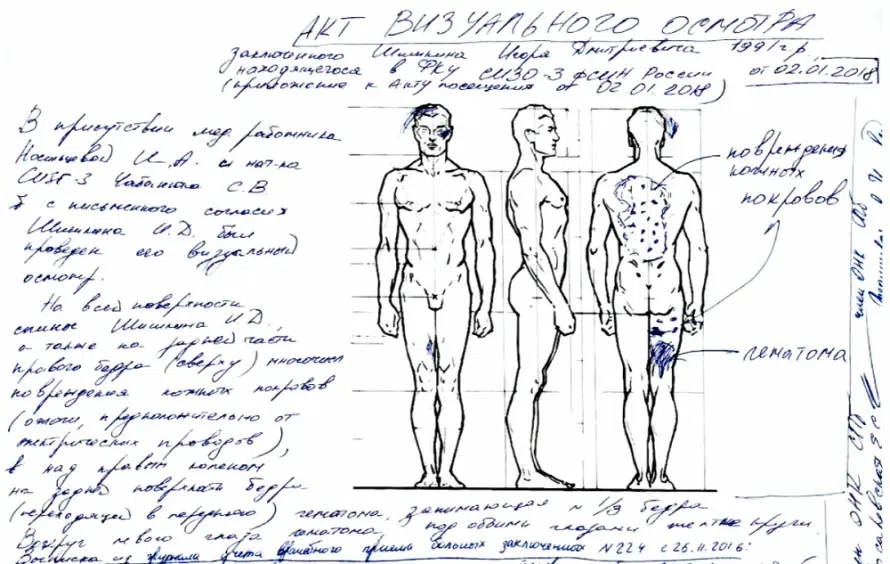 АКТ ВИЗУАЛЬНОГО ОСМОТРА
заключенного Шишкина Игоря Дмитриевича 1991 г.р.,
находящегося в ФКУ СИЗО-3 ФСИН России
от 02.01.2018
(приложение к Акту посещения от 02.01.2018)
В присутствии мед работника
И.А. и нач-ка
СИЗО-3 С.В
с письменного согласия
Шишкина И.Д. был
проведен его визуальный
осмотр.
На всей поверхности
спины Шишкина И.Д.,
а также на задней части
правого бедра (сверху) многочисл
повреждения кожных покровов
(ожоги, предположительно от
электрических проводов),
над правым коленом
на задней поверхности бедра
(переходящей в переднюю) гематома, занимающая ≈ 1/3 бедра
Вокруг левого глаза гематома, под обоими глазами желтые круги
Выписка из журнала учета врачебного приема больных заключенных N 224 с 26.11.2016:
повреждения
кожных
покровов
гематома
член ОНК СПб
ОНК СПб